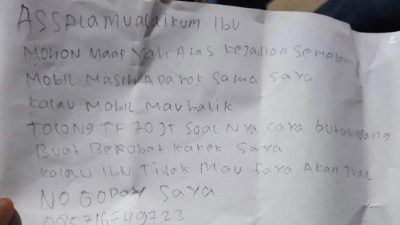 ASSALAMUALAIKUM IBU
MOHON MAAF YAH ATAS KEJADIAN SEMALAM
MOBIL MASIH ADA KOK SAMA SAYA
KALAU MOBIL MAU BALIK
TOLONG TF 20 JT SOALNYA SAYA BUTUH UANG
BUAT BEROBAT KAKEK SAYA
KALAU IBU TIDAK MAU SAYA AKAN JUAL
NO GOPAY SAYA